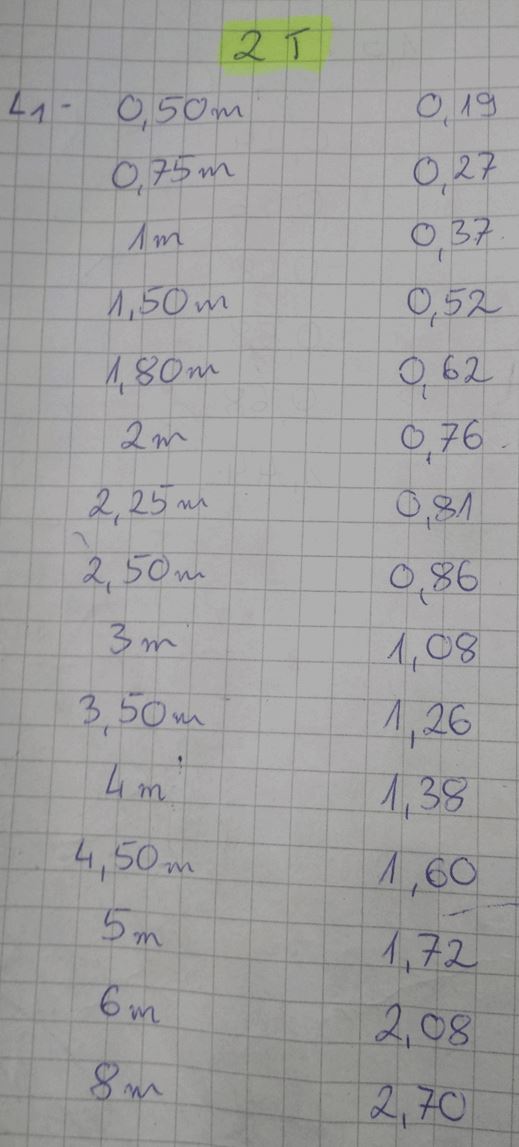 2 T
L1 - 0,50m 0,19
0,75m 0,27
1m 0,37
1,50m 0,52
1,80m 0,62
2m 0,76
2,25m 0,81
2,50m 0,86
3m 1,08
3,50m 1,26
4m 1,38
4,50m 1,60
5m 1,72
6m 2,08
8m 2,70